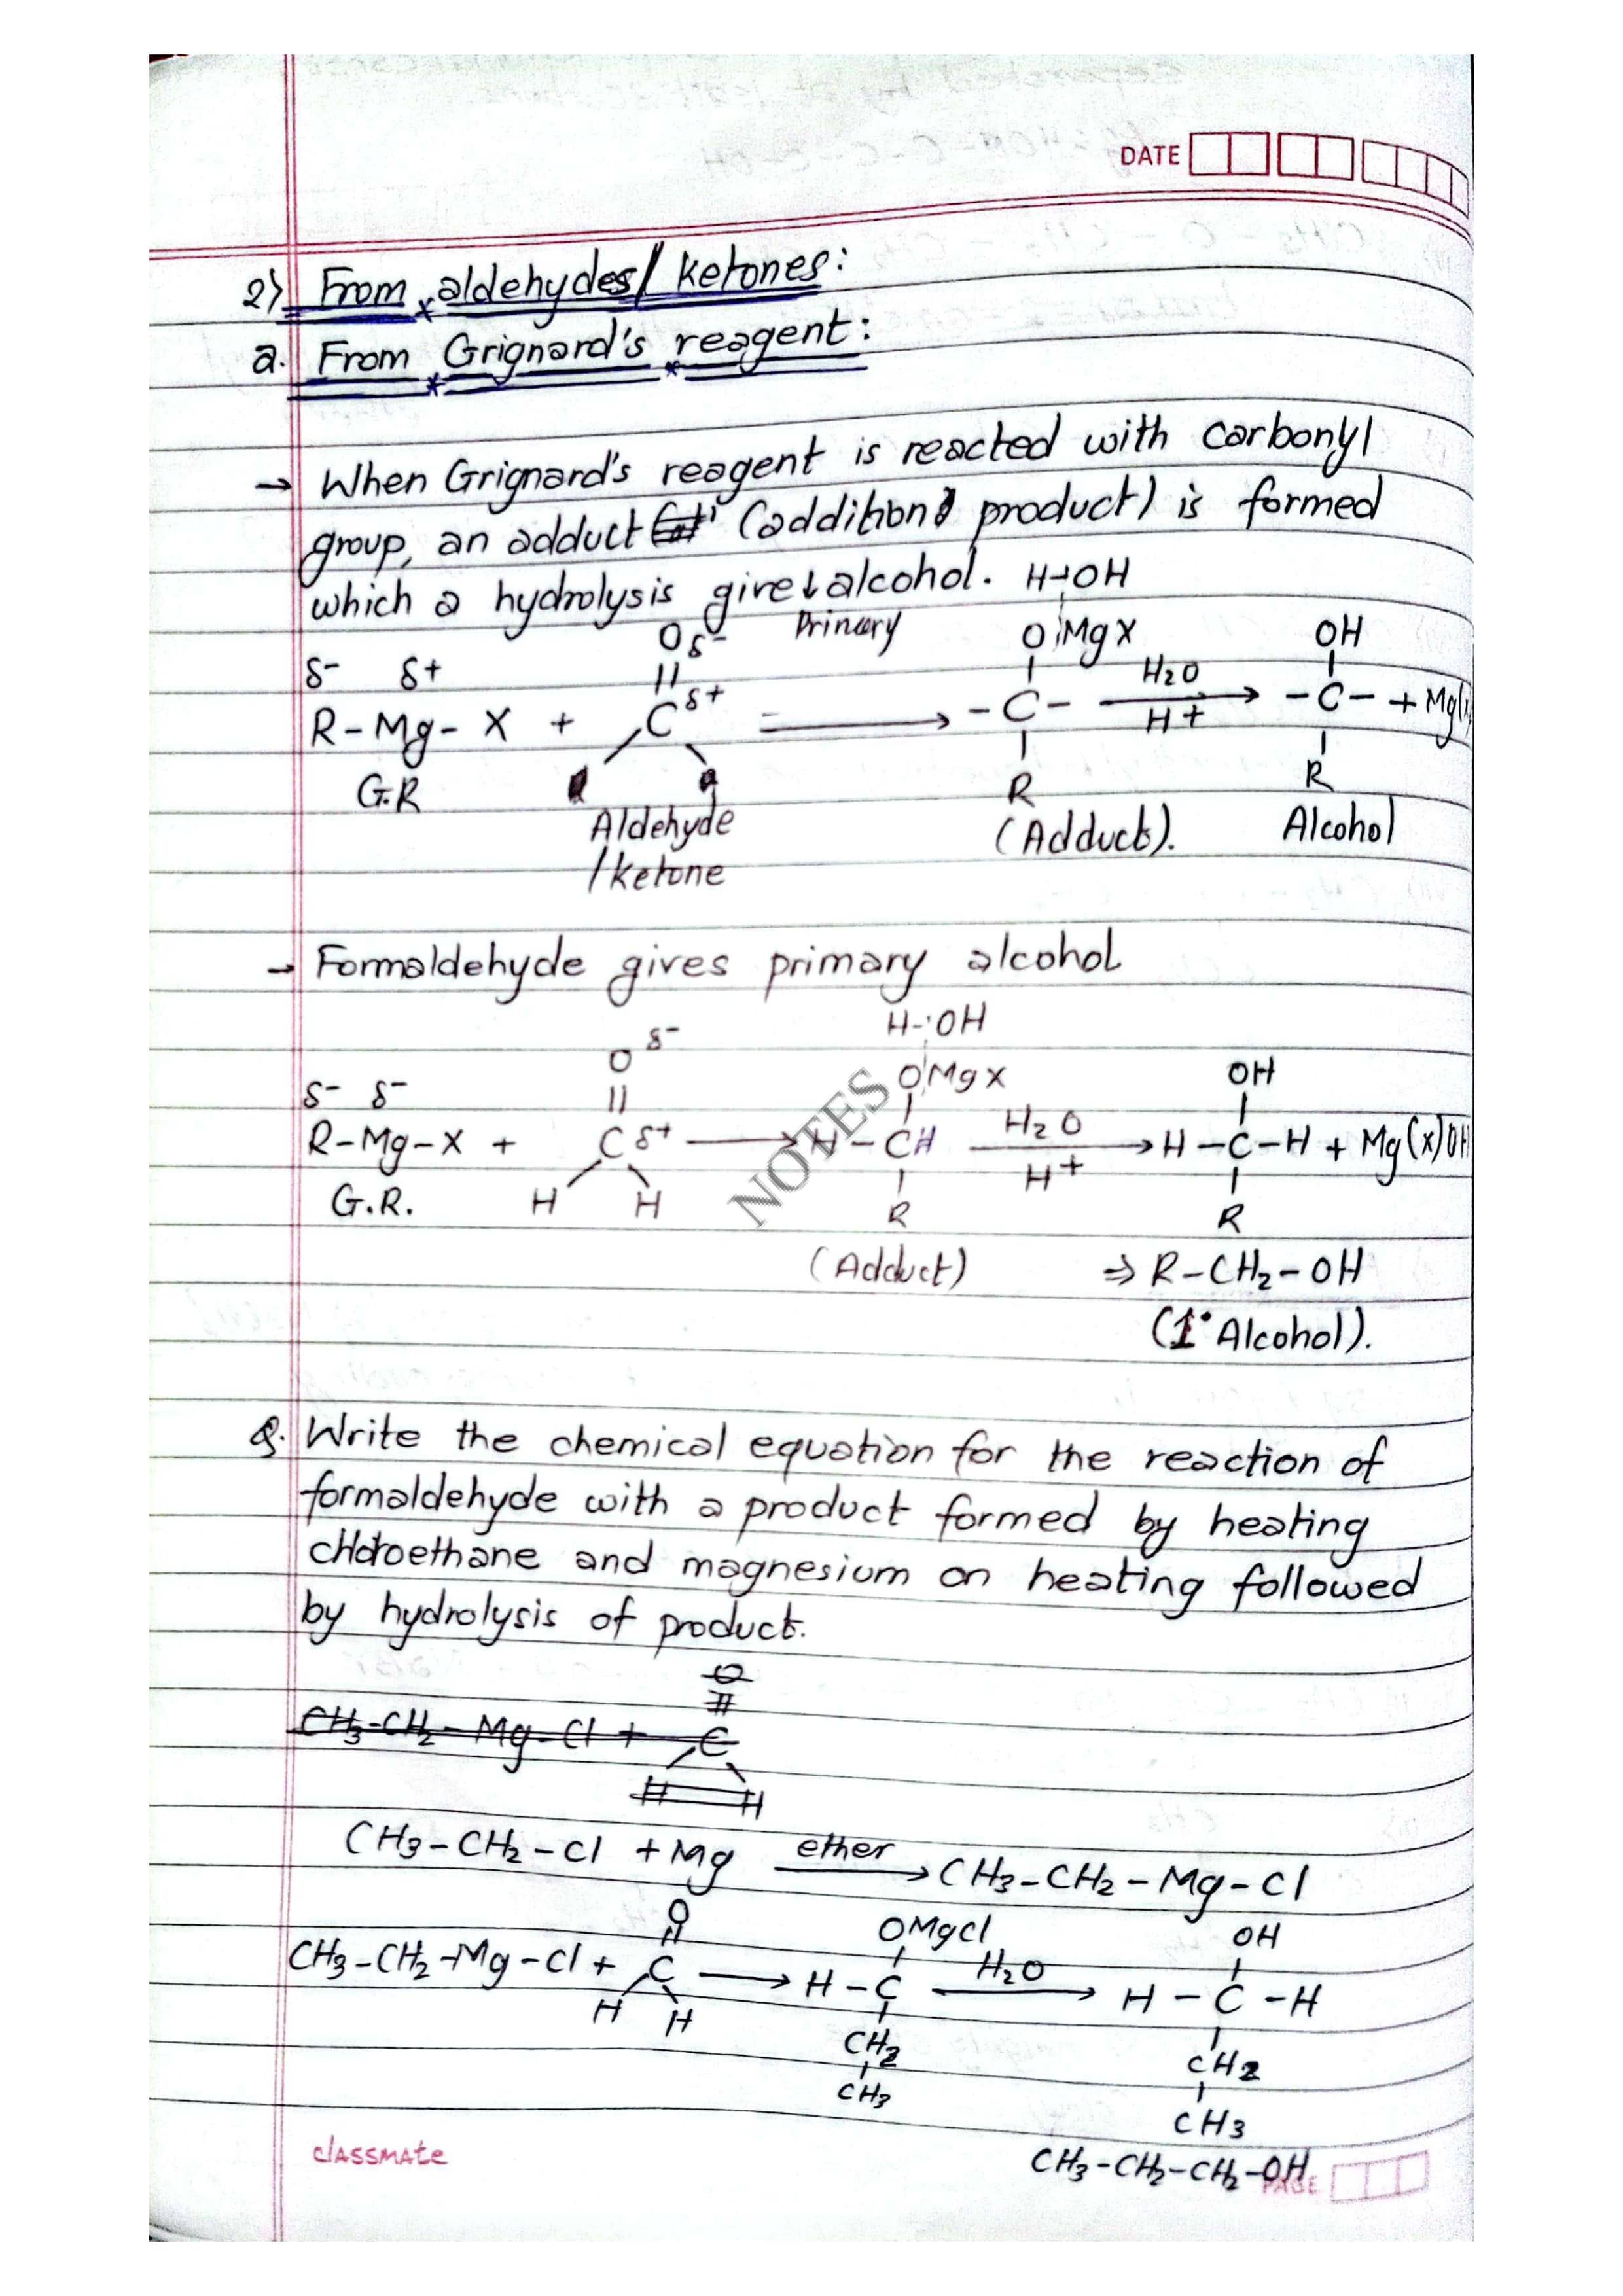 DATE
2) From aldehydes/ ketones:
a. From Grignard's reagent:
→ When Grignard's reagent is reacted with carbonyl
group, an adduct (addition product) is formed
which a hydrolysis give alcohol. H-OH
Primary
Oδ- O MgX OH
δ- δ+ ||
R-Mg-X + C δ+ ⟶ -C- H2O/H+ ⟶ -C- + Mg(X
G.R R R
Aldehyde (Adduct). Alcohol
/ketone
→ Formaldehyde gives primary alcohol
H-OH
O δ- OMgX OH
δ- δ- ||
R-Mg-X + C δ+ ⟶ H-CH H2O/H+ ⟶ H-C-H + Mg(X)OH
G.R. H H R R
(Adduct) ⇒ R-CH2-OH
(1° Alcohol).
NOTES
Q. Write the chemical equation for the reaction of
formaldehyde with a product formed by heating
chloroethane and magnesium on heating followed
by hydrolysis of product.
O
||
CH3-CH2-Mg-Cl + C
H H
CH3-CH2-Cl + Mg ether ⟶ CH3-CH2-Mg-Cl
O OMgCl OH
||
CH3-CH2-Mg-Cl + C ⟶ H-C H2O ⟶ H-C-H
H H CH2 CH2
CH3 CH3
CH3-CH2-CH2-OH
classmate
PAGE